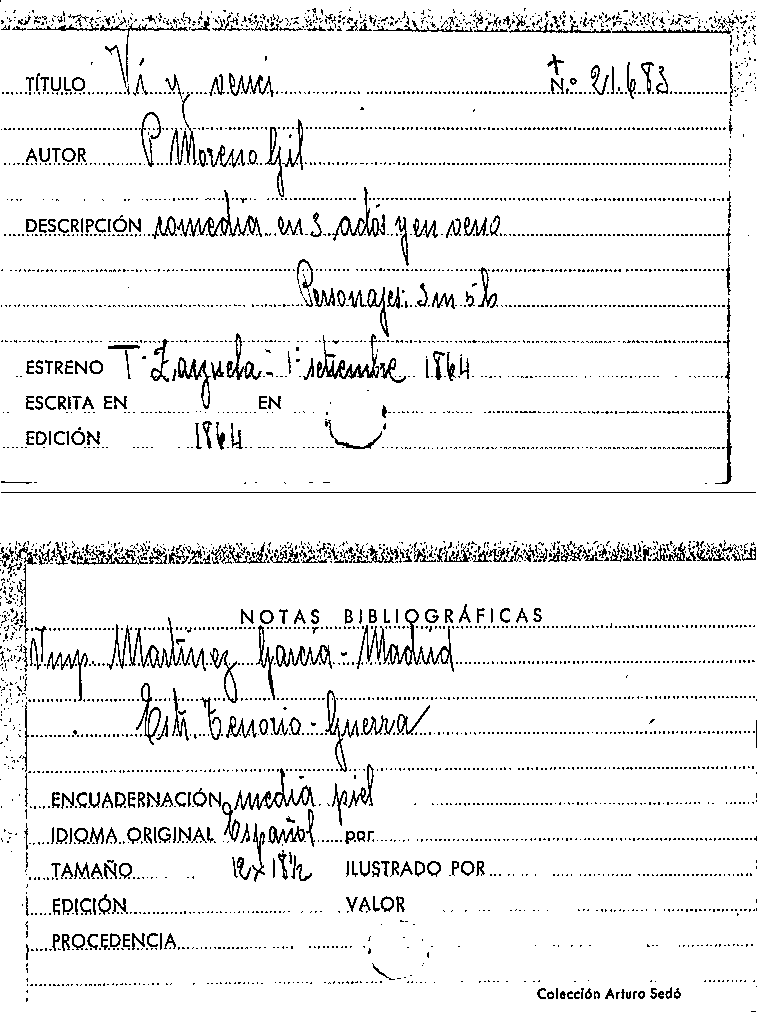 TÍTULO Vi y vencí N.º 21.683
AUTOR P Moreno Gil
DESCRIPCIÓN comedia en 3 actos y en verso
Personajes: 3 m 5 h
ESTRENO T. Zarzuela - 1º setiembre 1864
ESCRITA EN EN
EDICIÓN 1864
NOTAS BIBLIOGRÁFICAS
Imp. Martínez García - Madrid
Estr. Tenorio - Guerra
ENCUADERNACIÓN media piel
IDIOMA ORIGINAL Español por
TAMAÑO 12 x 18½ ILUSTRADO POR
EDICIÓN VALOR
PROCEDENCIA
Colección Arturo Sedó